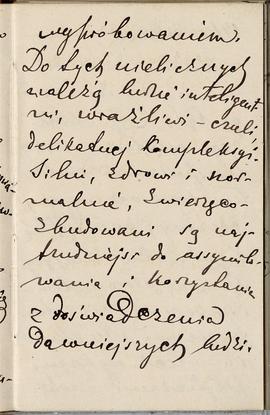 wypróbowaniem.
Do tych nielicznych
należą ludzie inteligent
ni, wrażliwi – czuli
delikatnej kompleksyi.
Silni, zdrowi i nor
malni, zwierzęco
zbudowani są naj
trudniejsi do assymil-
wania i korzystania
z doświadczenia
dawniejszych ludzi.